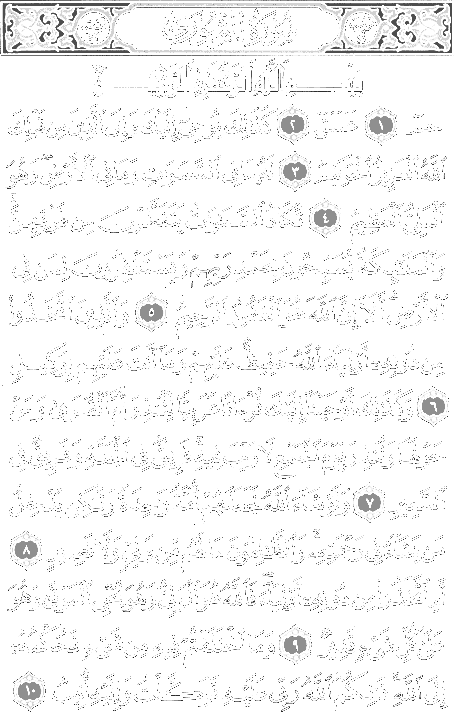 سورة الشورى
بسم الله الرحمن الرحيم
حم ١ عسق ٢ كذلك يوحي إليك وإلى الذين من قبلك
الله العزيز الحكيم ٣ له ما في السماوات وما في الأرض وهو
العلي العظيم ٤ تكاد السماوات يتفطرن من فوقهن
والملائكة يسبحون بحمد ربهم ويستغفرون لمن في
الأرض ألا إن الله هو الغفور الرحيم ٥ والذين اتخذوا
من دونه أولياء الله حفيظ عليهم وما أنت عليهم بوكيل
٦ وكذلك أوحينا إليك قرآنا عربيا لتنذر أم القرى ومن
حولها وتنذر يوم الجمع لا ريب فيه فريق في الجنة وفريق في
السعير ٧ ولو شاء الله لجعلهم أمة واحدة ولكن يدخل
من يشاء في رحمته والظالمون ما لهم من ولي ولا نصير ٨
أم اتخذوا من دونه أولياء فالله هو الولي وهو يحيي الموتى وهو
على كل شيء قدير ٩ وما اختلفتم فيه من شيء فحكمه
إلى الله ذلكم الله ربي عليه توكلت وإليه أنيب ١٠